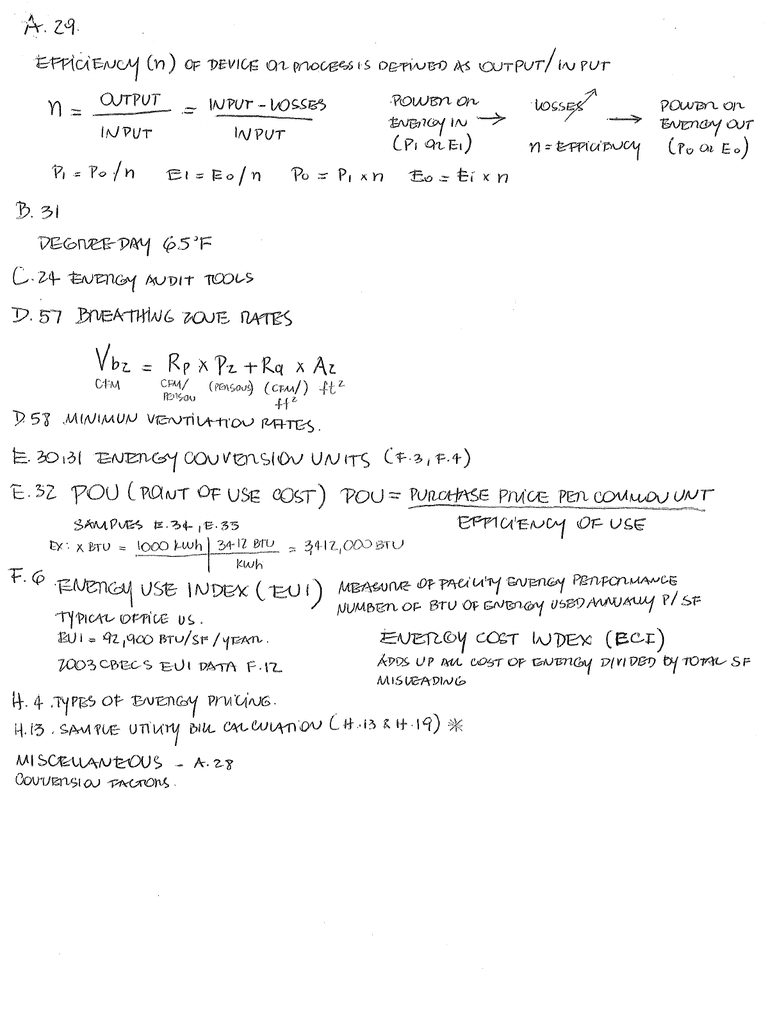 A.29.
EFFICIENCY (n) OF DEVICE OR PROCESS IS DEFINED AS OUTPUT/INPUT
n = OUTPUT / INPUT = INPUT - LOSSES / INPUT
POWER OR ENERGY IN (PI OR EI) → LOSSES n = EFFICIENCY → POWER OR ENERGY OUT (PO OR EO)
PI = PO/n EI = EO/n PO = PI x n EO = EI x n
B. 31
DEGREE-DAY 65°F
C.24 ENERGY AUDIT TOOLS
D.57 BREATHING ZONE RATES
Vbz = Rp x Pz + Ra x Az
CFM CFM/PERSON (PERSONS) (CFM/) ft² ft²
D.58 .MINIMUN VENTILATION RATES.
E. 30,31 ENERGY CONVERSION UNITS (F.3, F.4)
E.32 POU (POINT OF USE COST) POU = PURCHASE PRICE PER COMMON UNT / EFFICIENCY OF USE
SAMPLES E.34, E.35
EX: X BTU = 1000 KWh | 3412 BTU / KWh = 3412,000 BTU
F.6 ENERGY USE INDEX (EUI) MEASURE OF FACILITY ENERGY PERFORMANCE
NUMBER OF BTU OF ENERGY USED ANNUALLY P/SF
TYPICAL OFFICE US.
EUI = 92,900 BTU/SF/YEAR.
2003 CBECS EUI DATA F.12
ENERGY COST INDEX (ECI)
ADDS UP ALL COST OF ENERGY DIVIDED BY TOTAL SF
MISLEADING
H.4 .TYPES OF ENERGY PRICING.
H.13. SAMPLE UTILITY BILL CALCULATION (H.13 & H.19) *
MISCELLANEOUS - A.28
CONVERSION FACTORS.